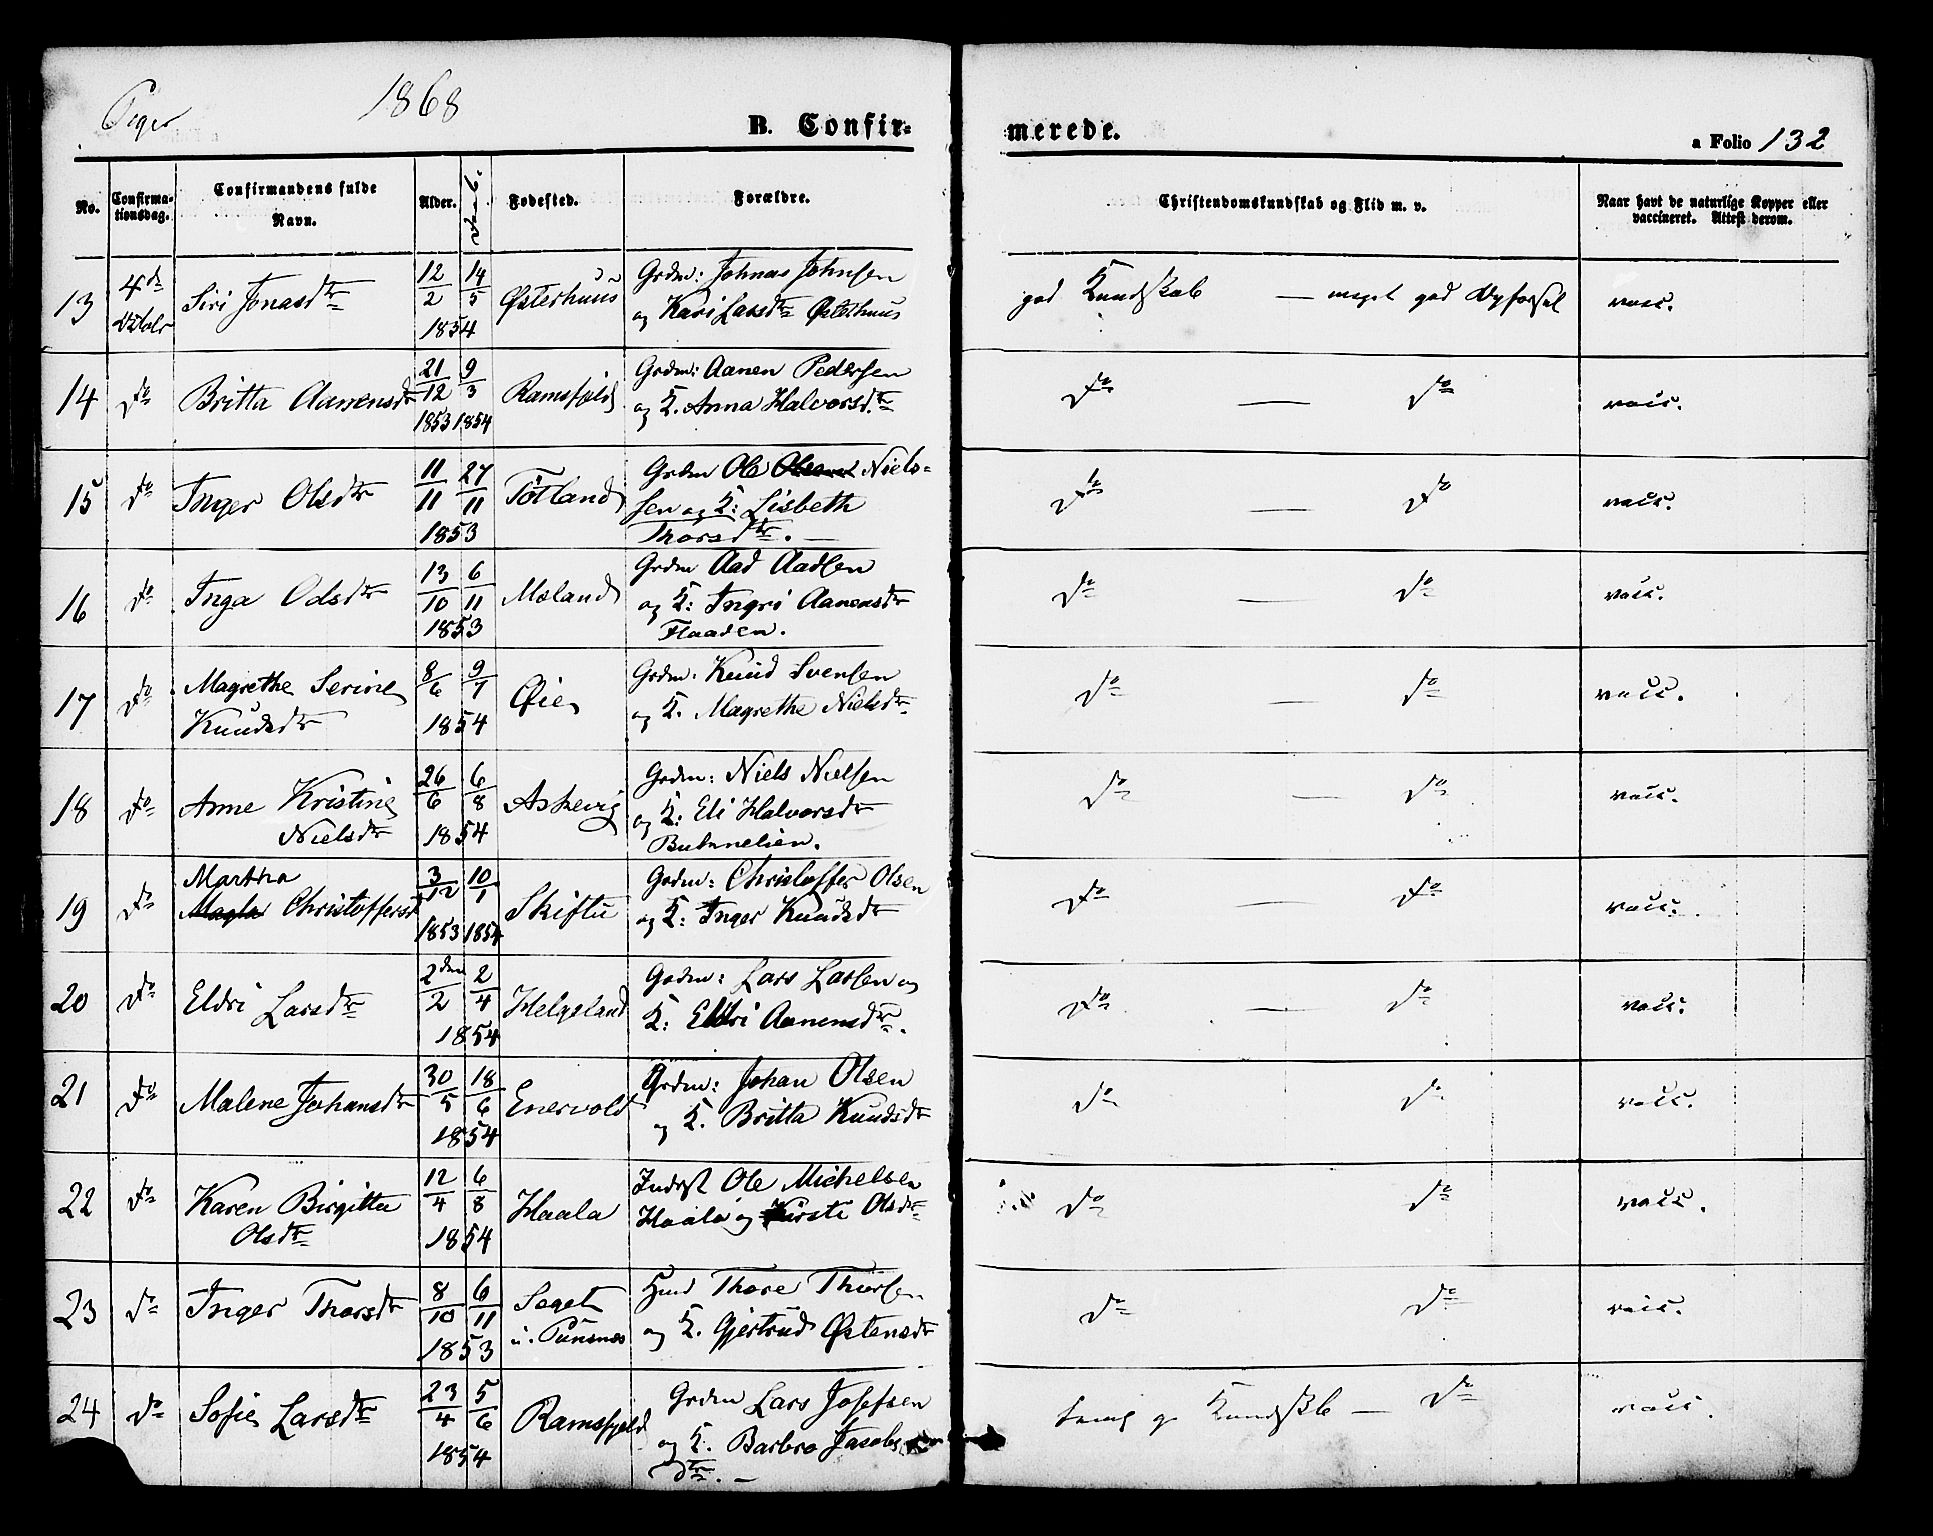 Piger 1868 B. Confir- merede. a Folio 132
No. Confirma-tionsdag. Confirmandens fulde Navn. Alder. Fødested. Forældre. Christendomskundskab og Flid m. v. Naar havt de naturlige Kopper eller vaccineret. Attest derom.
13 4de Octobr Siri Jonasdtr 12/2 14/5 1854 Østerhuus Grdm: Johnas Johnsen
og Kari Larsdtr Østerhuus god Kundskab — meget god Opførsel vacc.
14 do Britta Aanensdtr 21/12 1853 9/3 1854 Ramsfjeld Grdm: Aanen Pedersen
og K. Anna Halvorsdtr do — do vacc.
15 do Inger Olsdtr 11/11 27/11 1853 Tötland Grdm Ole Niels-
sen og K: Lisbeth
Thorsdtr. — do — do vacc.
16 do Inga Odsdtr 13/10 6/11 1853 Mæland Grdm Aad Aadsen
og K: Ingri Aanensdtr
Flaaden. do — do vacc.
17 do Magrethe Serine
Knudsdtr 8/6 9/7 1854 Øie Grdm: Knud Svensen
og K. Magrethe Nielsdtr do — do vacc.
18 do Anne Kristine
Nielsdtr 26/6 6/8 1854 Askevig Grdm: Niels Nielsen
og K: Eli Halvorsdtr do — do vacc.
19 do Martha
Christoffersd 3/12 1853 10/1 1854 Skiftu Grdm: Christoffer Olsen
og K: Inger Knudsdtr do — do vacc.
20 do Eldri Larsdtr 2den/2 2/4 1854 Helgeland Grdm: Lars Larsen og
K: Eldri Aanensdtr. do — do vacc.
21 do Malene Johansdtr 30/5 18/6 1854 Enervold Grdm: Johan Olsen
og K. Britta Knudsdtr do do vacc.
22 do Karen Birgitta
Olsdtr 12/4 6/8 1854 Haala Inderst Ole Michelsen
Haala og Kirsti Olsdtr do do vacc.
23 do Inger Thorsdtr 8/10 6/11 1853 Saget
u. Tunsnes Hmd Thore Thorsen
og K. Gjertrud Østensdtr do do vacc.
24 do Sofie Larsdtr 23/4 5/6 1854 Ramsfjeld Grdm Lars Josefsen
og K. Barbro Jacobs
dtr. — Temlig g Kundskb — do vacc.